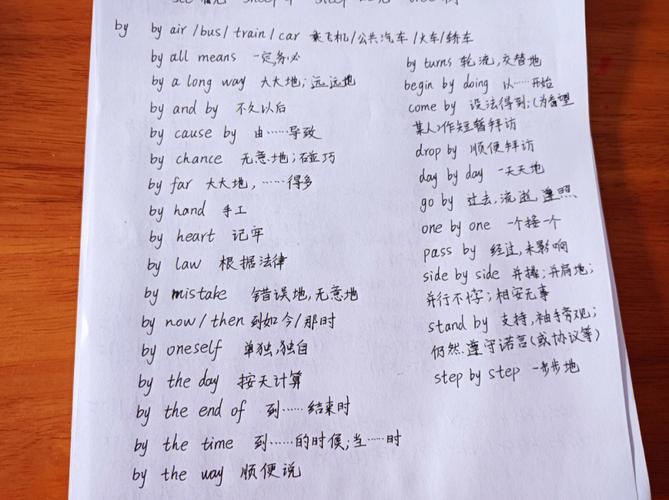 by by air /bus/ train/ car 乘飞机/公共汽车/火车/轿车
by all means 一定,务必
by a long way 大大地;远远地
by and by 不久以后
by cause by 由……导致
by chance 无意地;碰巧
by far 大大地,……得多
by hand 手工
by heart 记牢
by law 根据法律
by mistake 错误地,无意地
by now/then 到如今/那时
by oneself 单独,独自
by the day 按天计算
by the end of 到……结束时
by the time 到……的时候;当……时
by the way 顺便说
by turns 轮流,交替地
begin by doing 以……开始
come by 设法得到;(为看望
某人)作短暂拜访
drop by 顺便拜访
day by day 一天天地
go by 过去,流逝,遵照
one by one 一个接一个
pass by 经过,未影响
side by side 并排;并肩地;
并行不悖;相安无事
stand by 支持,袖手旁观;
仍然遵守诺言(或协议等)
step by step 一步步地